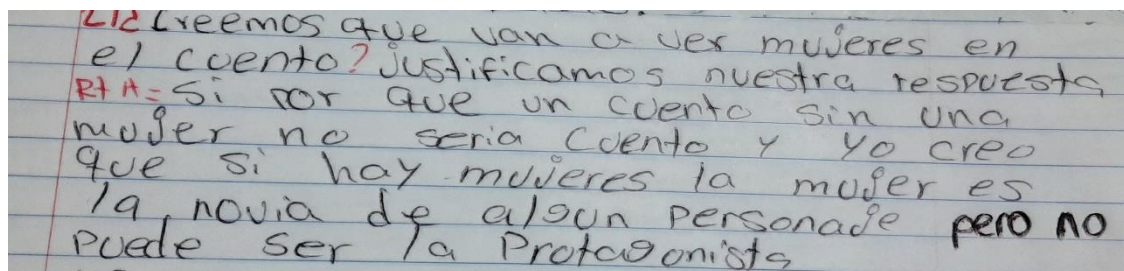 creemos que van a ver mujeres en
el cuento? justificamos nuestra respuesta
RtA= Si por que un cuento sin una
mujer no seria cuento y yo creo
que si hay mujeres la mujer es
la novia de algun personaje pero no
puede ser la protagonista